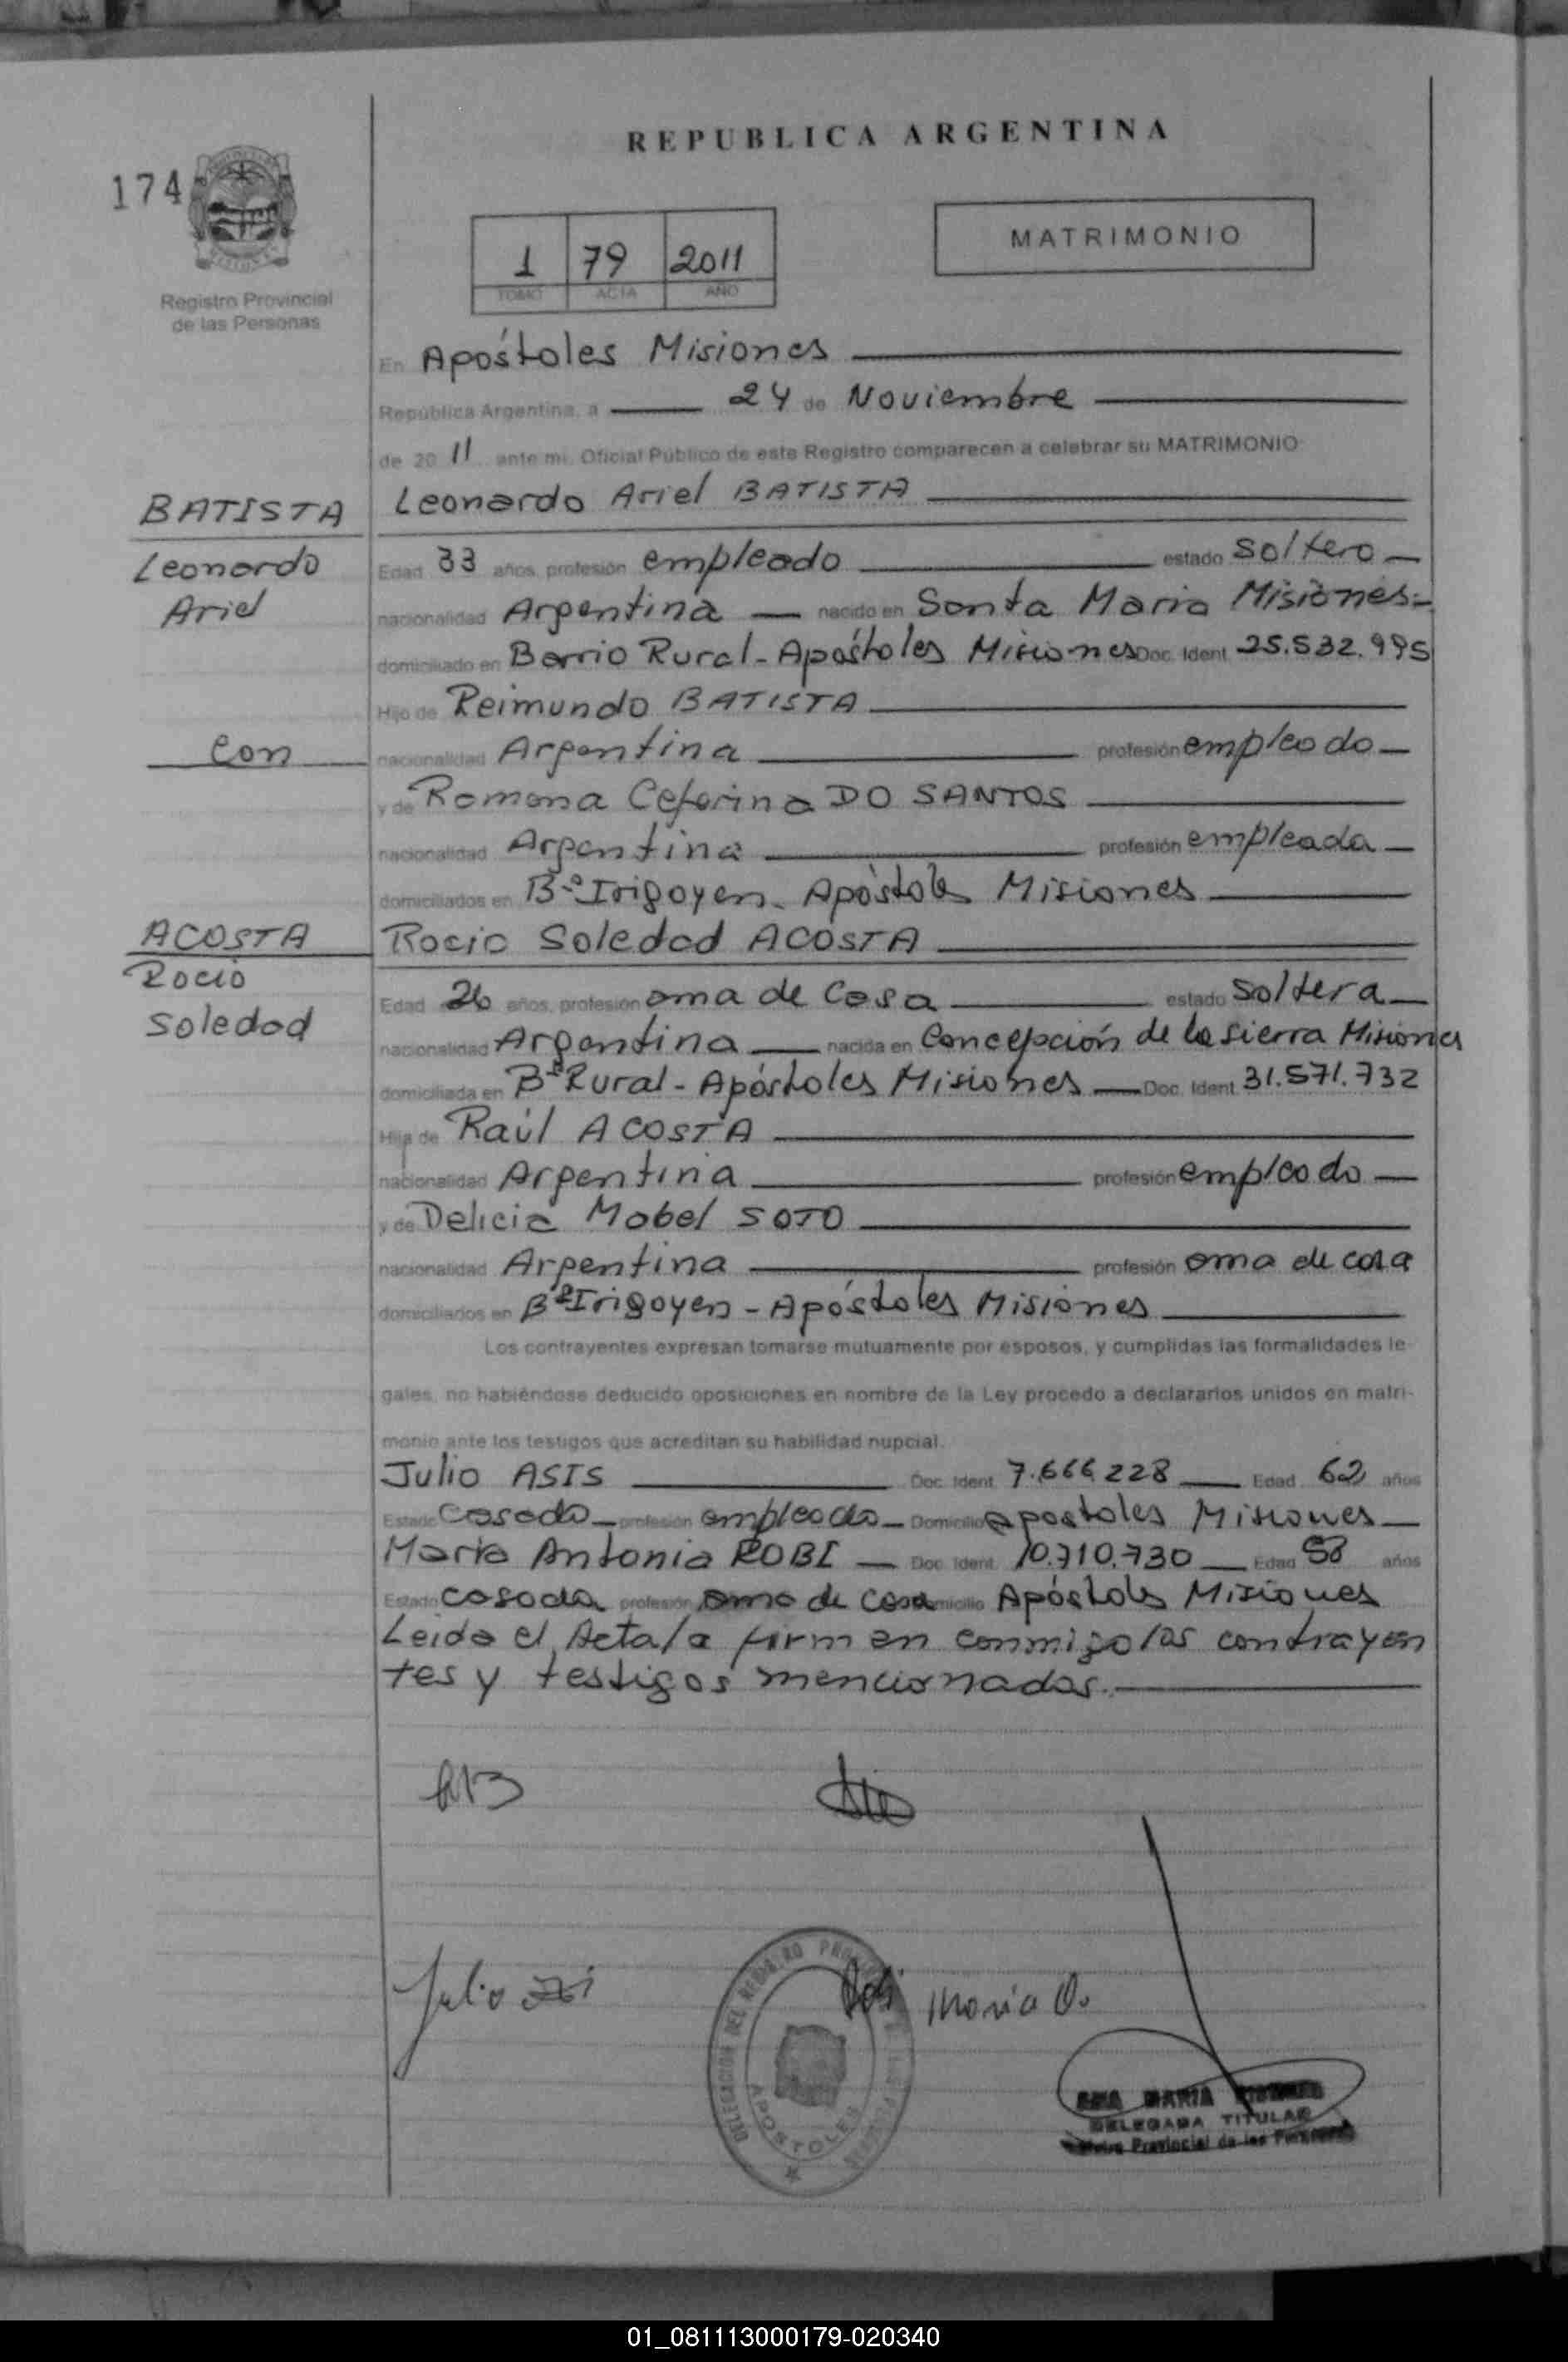 REPUBLICA ARGENTINA
174
1 79 2011
TOMO ACTA AÑO
MATRIMONIO
Registro Provincial
de las Personas
En Apóstoles Misiones
República Argentina, a 24 de Noviembre
de 20 11 ante mi, Oficial Público de este Registro comparecen a celebrar su MATRIMONIO
BATISTA Leonardo Ariel BATISTA
Leonardo Edad 33 años, profesión empleado estado soltero
Ariel nacionalidad Argentina nacido en Santa Maria Misiones
domiciliado en Barrio Rural - Apóstoles Misiones Doc. Ident. 25.532.995
Hijo de Reimundo BATISTA
con nacionalidad Argentina profesión empleado
y de Ramona Ceferina DO SANTOS
nacionalidad Argentina profesión empleada
domiciliados en Bº Irigoyen - Apóstoles Misiones
ACOSTA Rocio Soledad ACOSTA
Rocio Edad 26 años, profesión ama de casa estado soltera
Soledad nacionalidad Argentina nacida en Concepción de la Sierra Misiones
domiciliada en Bº Rural - Apóstoles Misiones Doc. Ident. 31.571.732
Hija de Raúl ACOSTA
nacionalidad Argentina profesión empleado
y de Delicia Mabel SOTO
nacionalidad Argentina profesión ama de casa
domiciliados en Bº Irigoyen - Apóstoles Misiones
Los contrayentes expresan tomarse mutuamente por esposos, y cumplidas las formalidades le-
gales, no habiéndose deducido oposiciones en nombre de la Ley procedo a declararlos unidos en matri-
monio ante los testigos que acreditan su habilidad nupcial.
Julio ASIS Doc. Ident. 7.666.228 Edad 62 años
Estado casado profesión empleado Domicilio apostoles Misiones
Maria Antonia ROBI Doc. Ident. 10.710.730 Edad 58 años
Estado casada profesión ama de casa Domicilio Apóstoles Misiones
Leida el Acta la firman conmigo los contrayen
tes y testigos mencionados.
Julio
Maria A.
DELEGACION DEL REGISTRO
APOSTOLES
ANA MARIA
DELEGADA TITULAR
Provincial de las Personas
01_081113000179-020340